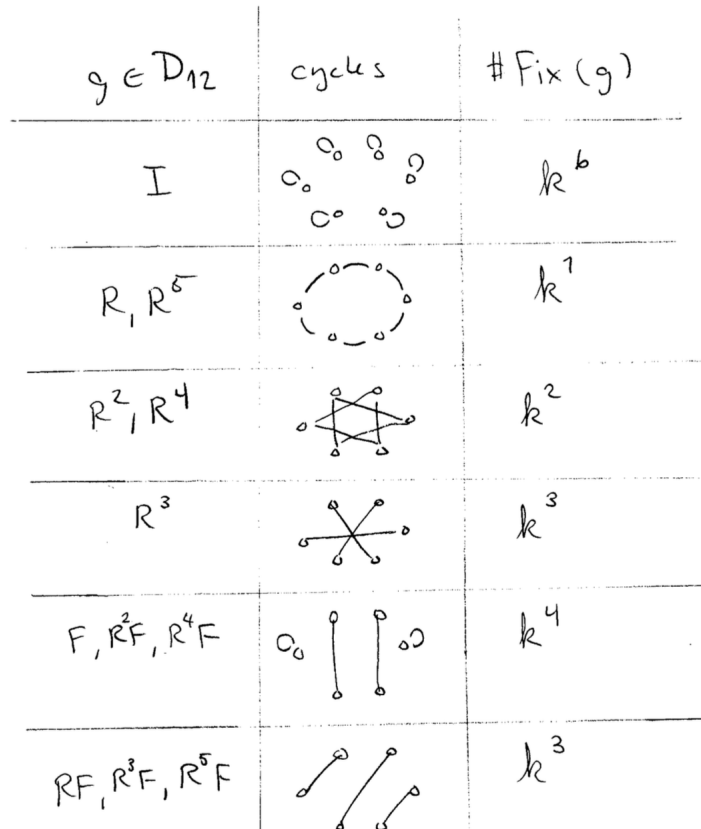 g ∈ D₁₂ cycles # Fix (g)
I k⁶
R, R⁵ k¹
R², R⁴ k²
R³ k³
F, R²F, R⁴F k⁴
RF, R³F, R⁵F k³